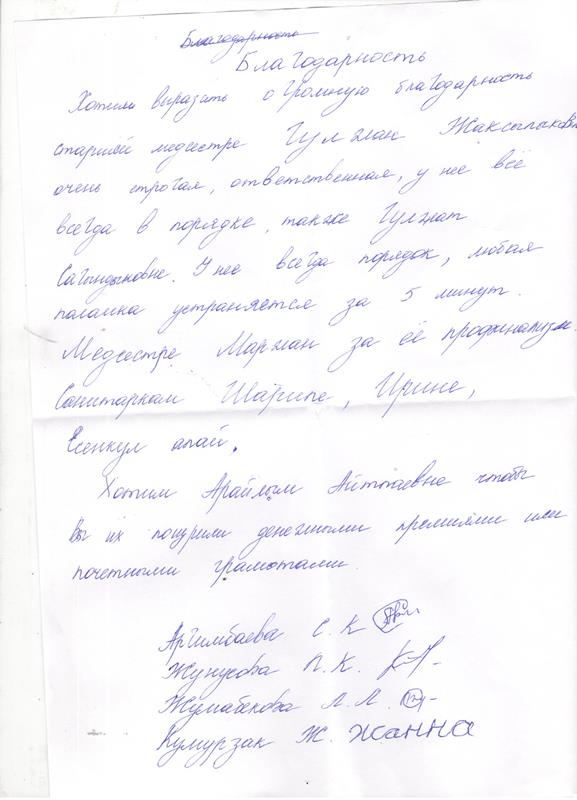 Благодарность
Благодарность
Хотим выразить огромную благодарность
старшей медсестре Гулжан Жаксылыковне
очень строгая, ответственная, у нее всё
всегда в порядке, также Гулжат
Сагындыковне. У нее всегда порядок, любая
паломка устраняется за 5 минут.
Медсестре Маржан за её профинализм.
Санитаркам Шарипе, Ирине,
Есенкул апай.
Хотим Арайлым Айтпаевне чтобы
Вы их поощрили денежными премиями или
почетными грамотами.
Аргимбаева С. К
Жунусова П. К.
Жумабекова Л. Л.
Кумурзак Ж. Жанна